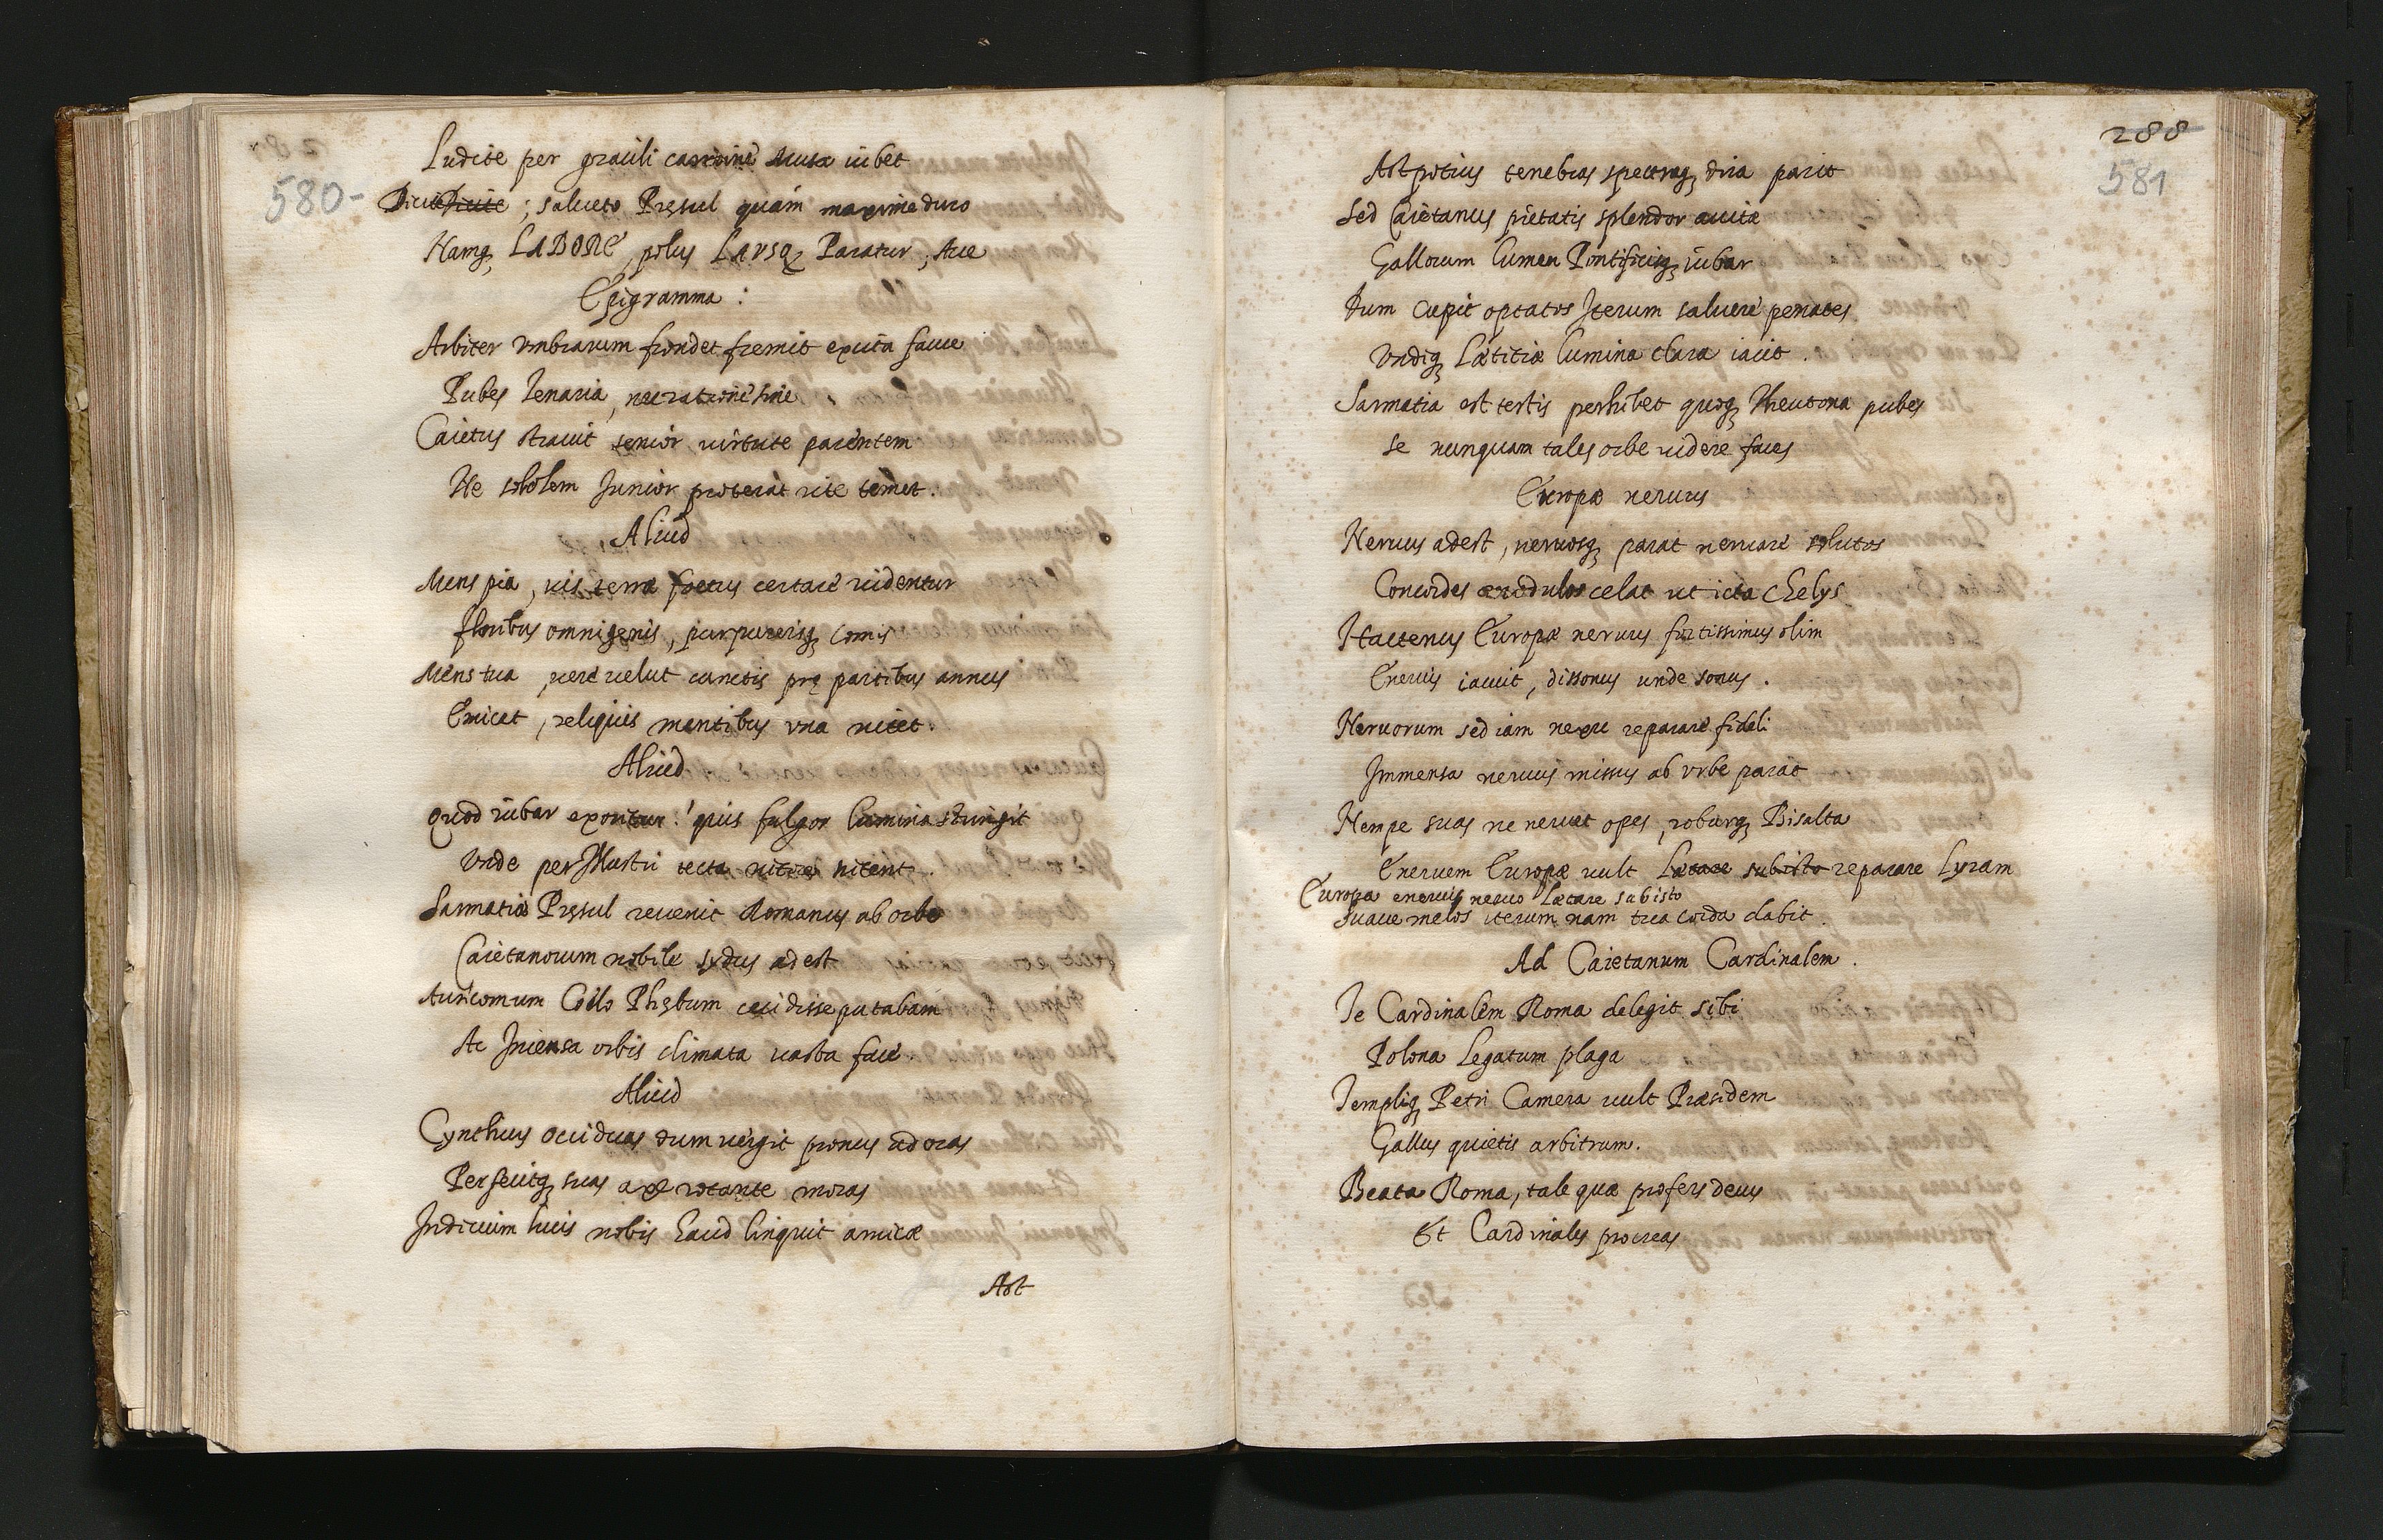 580-
Ludite per gracili carmine Musa iubet
Dicite ; salueto Pręsul quám maxime duro
Namq; LABORE, polus LAVSQ; Paratur, Aue
Epigramma :
Arbiter vmbrarum frondet fremit excita fauce
Pubes Tenaria, nec ratione sine
Caietus strauit senior uirtute parentem
Ne sobolem Junior proterat rite temet.
Aliud
Mens pia, uis terrę foetus certare uidentur
floribus omnigenis, purpureisq; comis
Mens tua, uere uelut cunctis prę partibus annus
Emicat, reliquis mentibus vna nitet.
Aliud
Quod iubar exoritur! quis fulgor lumina stringit
Vnde per Illustri tecta nitore nitent.
Sarmatiæ Pręsul reuenit Romanus ab orbe
Caietanorum nobile sydus adest
Auricomum Coelo Phębum cecidisse putabam
Ac Incensa orbis climata uasta face.
Aliud
Cynthius occiduas dum uergit pronus ad oras
Perficitq; suas axe rotante moras
Indicium lucis nobis haud linquit amicæ
Ast
288
581
Ast potius tenebras spectraq; dira parit
Sed Caietanus pietatis splendor auitæ
Gallorum lumen Pontificisq; iubar
Dum cupit optatos Iterum saluere penates
Vndiq; Lætitiæ lumina clara iacit.
Sarmatia est testis perhibet quoq; Theutona pubes
se nunquam tales orbe uidere faces
Europæ neruus
Neruus adest, neruosq; parat neruare solutos
Concordes modulos celat ut icta Chelys
Hactenus Europæ neruus fortissimus olim
Eneruis iacuit, dissonus unde sonus.
Neruorum sed iam nexu reparare fideli
Immensa neruus missus ab vrbe parat
Nempe suas ne neruet opes, roburq; Bisalta
Eneruem Europæ uult Lætare subisto reparare Lyram
Europa eneruis neruo Lætare subisto
Suaue melos iterum nam tua corda dabit.
Ad Caietanum Cardinalem.
Te Cardinalem Roma delegit sibi
Polona Legatum plaga
Templiq; Petri Camera uult Præsidem
Gallus quietis arbitrum.
Beata Roma, tale quæ profers decus
Et Cardinales procreas